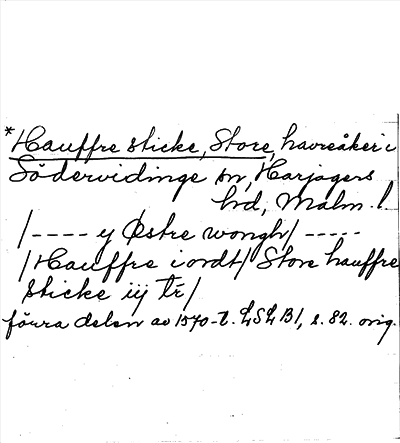 *Hauffre sticke, Store, havreåker i
Södervidinge sn, Harjagers
hd, Malm. l.
/---- y Østre wongh/ -----
/Hauffre i ordt/ Store hauffre
sticke iij tr/
förra delen av 1570-t. LSLB1, s. 82. orig.